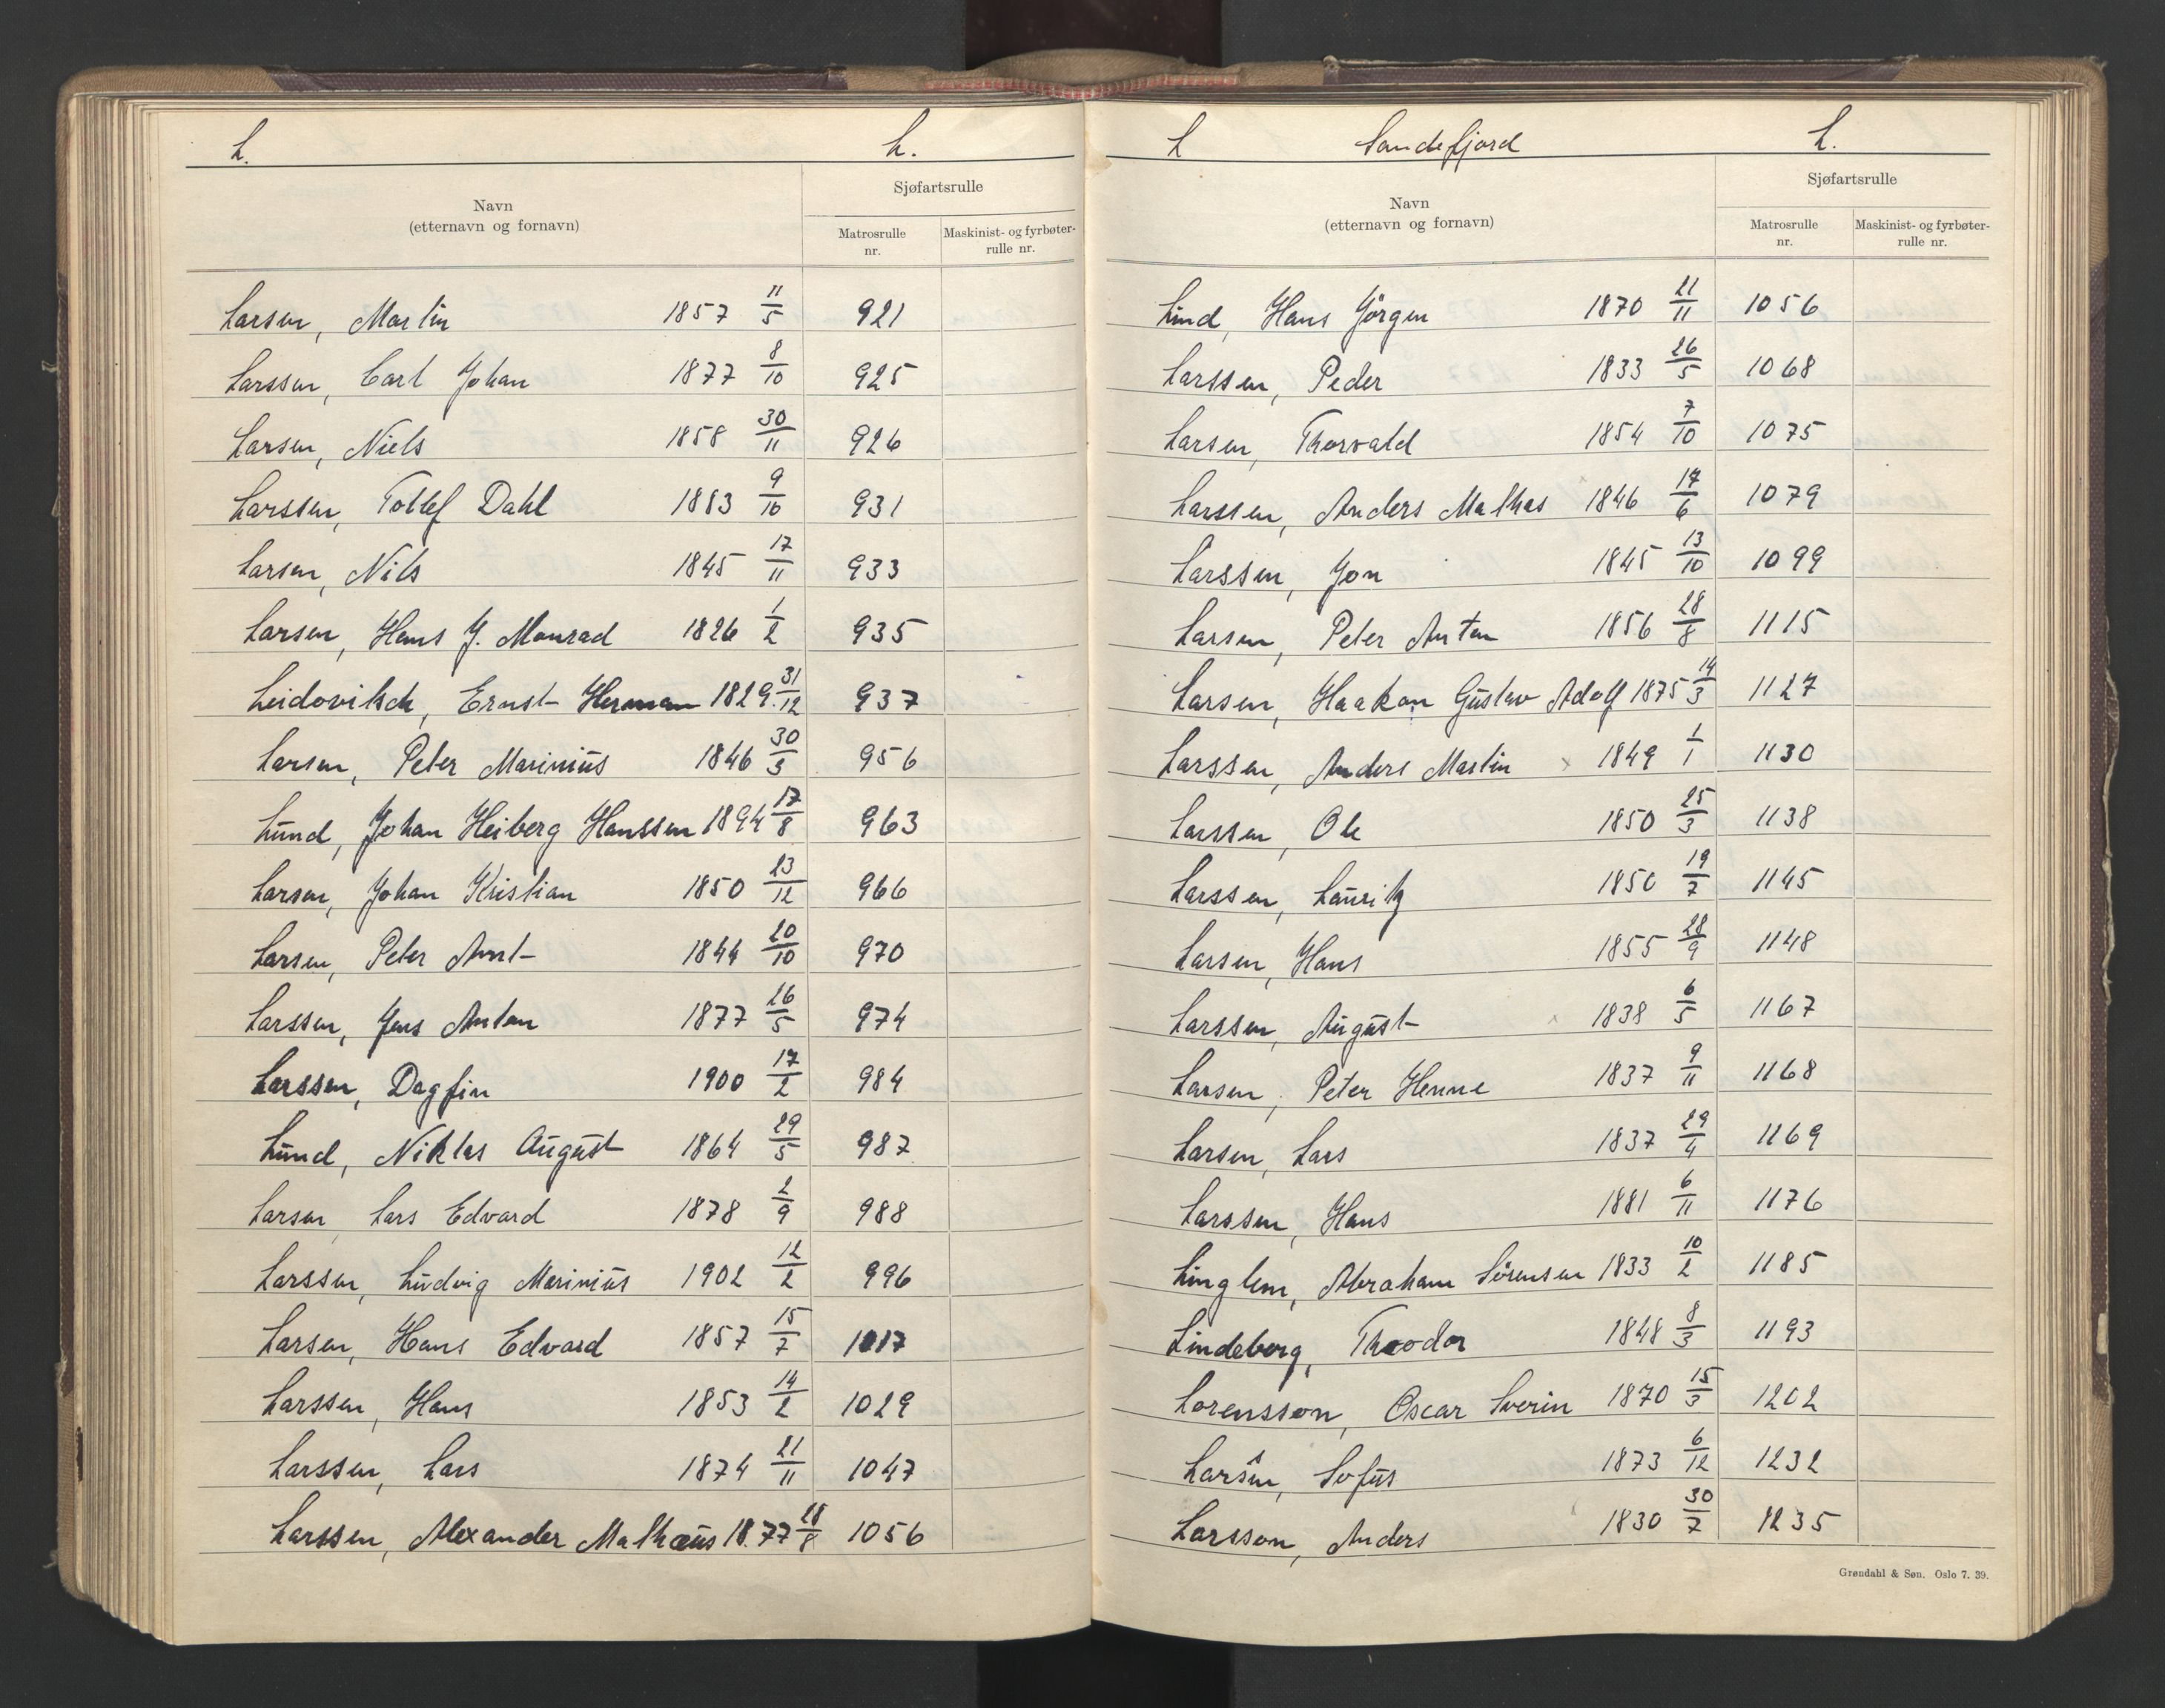 L. L.
Navn
(etternavn og fornavn)
Sjøfartsrulle
Matrosrulle nr.
Maskinist- og fyrbøter-rulle nr.
Larsen, Martin 1857 11/5 921
Larssen, Carl Johan 1877 8/10 925
Larsen, Niels 1858 30/11 926
Larssen, Tollef Dahl 1883 9/10 931
Larsen, Nils 1845 17/11 933
Larsen, Hans J. Monrad 1826 1/2 935
Ernst Herman 1829. 31/12 937
Larsen, Peter Marinius 1846 30/3 956
Lund, Johan Heiberg Hanssen 1894 17/8 963
Larsen, Johan Kristian 1850 23/12 966
Larsen, Peter Arnt 1844 20/10 970
Larssen, Jens Anton 1877 26/5 974
Larssen, Dagfin 1900 17/2 984
Lund, Niklas August 1864 29/5 987
Larsen Lars Edvard 1878 2/9 988
Larssen, Ludvig Marinius 1902 12/2 996
Larsen, Hans Edvard 1857 15/7 1017
Larssen, Hans 1853 14/2 1029
Larssen, Lars 1874 21/11 1047
Larssen, Alexander Mathæus 18.77 28/8 1056
L Sandefjord L.
Navn
(etternavn og fornavn)
Sjøfartsrulle
Matrosrulle nr.
Maskinist- og fyrbøter-rulle nr.
Lind, Hans Jörgen 1870 21/11 1056
Larssen, Peder 1833 26/5 1068
Larsen, Thorvald 1854 7/10 1075
Larssen, Anders Mathas 1846 17/6 1079
Larssen, Jon 1845 13/10 1099
Larsen, Peter Anton 1856 28/8 1115
Larsen, Haakon Gustav Adolf 1875 14/3 1127
Larssen, Anders Martin x 1849 1/1 1130
Larssen, Ole 1850 25/3 1138
Larssen, Lauritz 1850 19/7 1145
Larsen, Hans 1855 28/9 1148
Larssen, August 1838 6/5 1167
Larsen, Peter Henne 1837 9/11 1168
Larsen, Lars 1837 29/4 1169
Larssen, Hans 1881 6/11 1176
Linglem, Abraham Sörensen 1833 10/2 1185
Lindeberg, Theodor 1848 8/3 1193
Lorensson, Oscar Sverin 1870 15/3 1202
Larsen, Sofus 1873 6/12 1232
Larsson, Anders 1830 30/7 1235
Grøndahl & Søn. Oslo 7. 39.